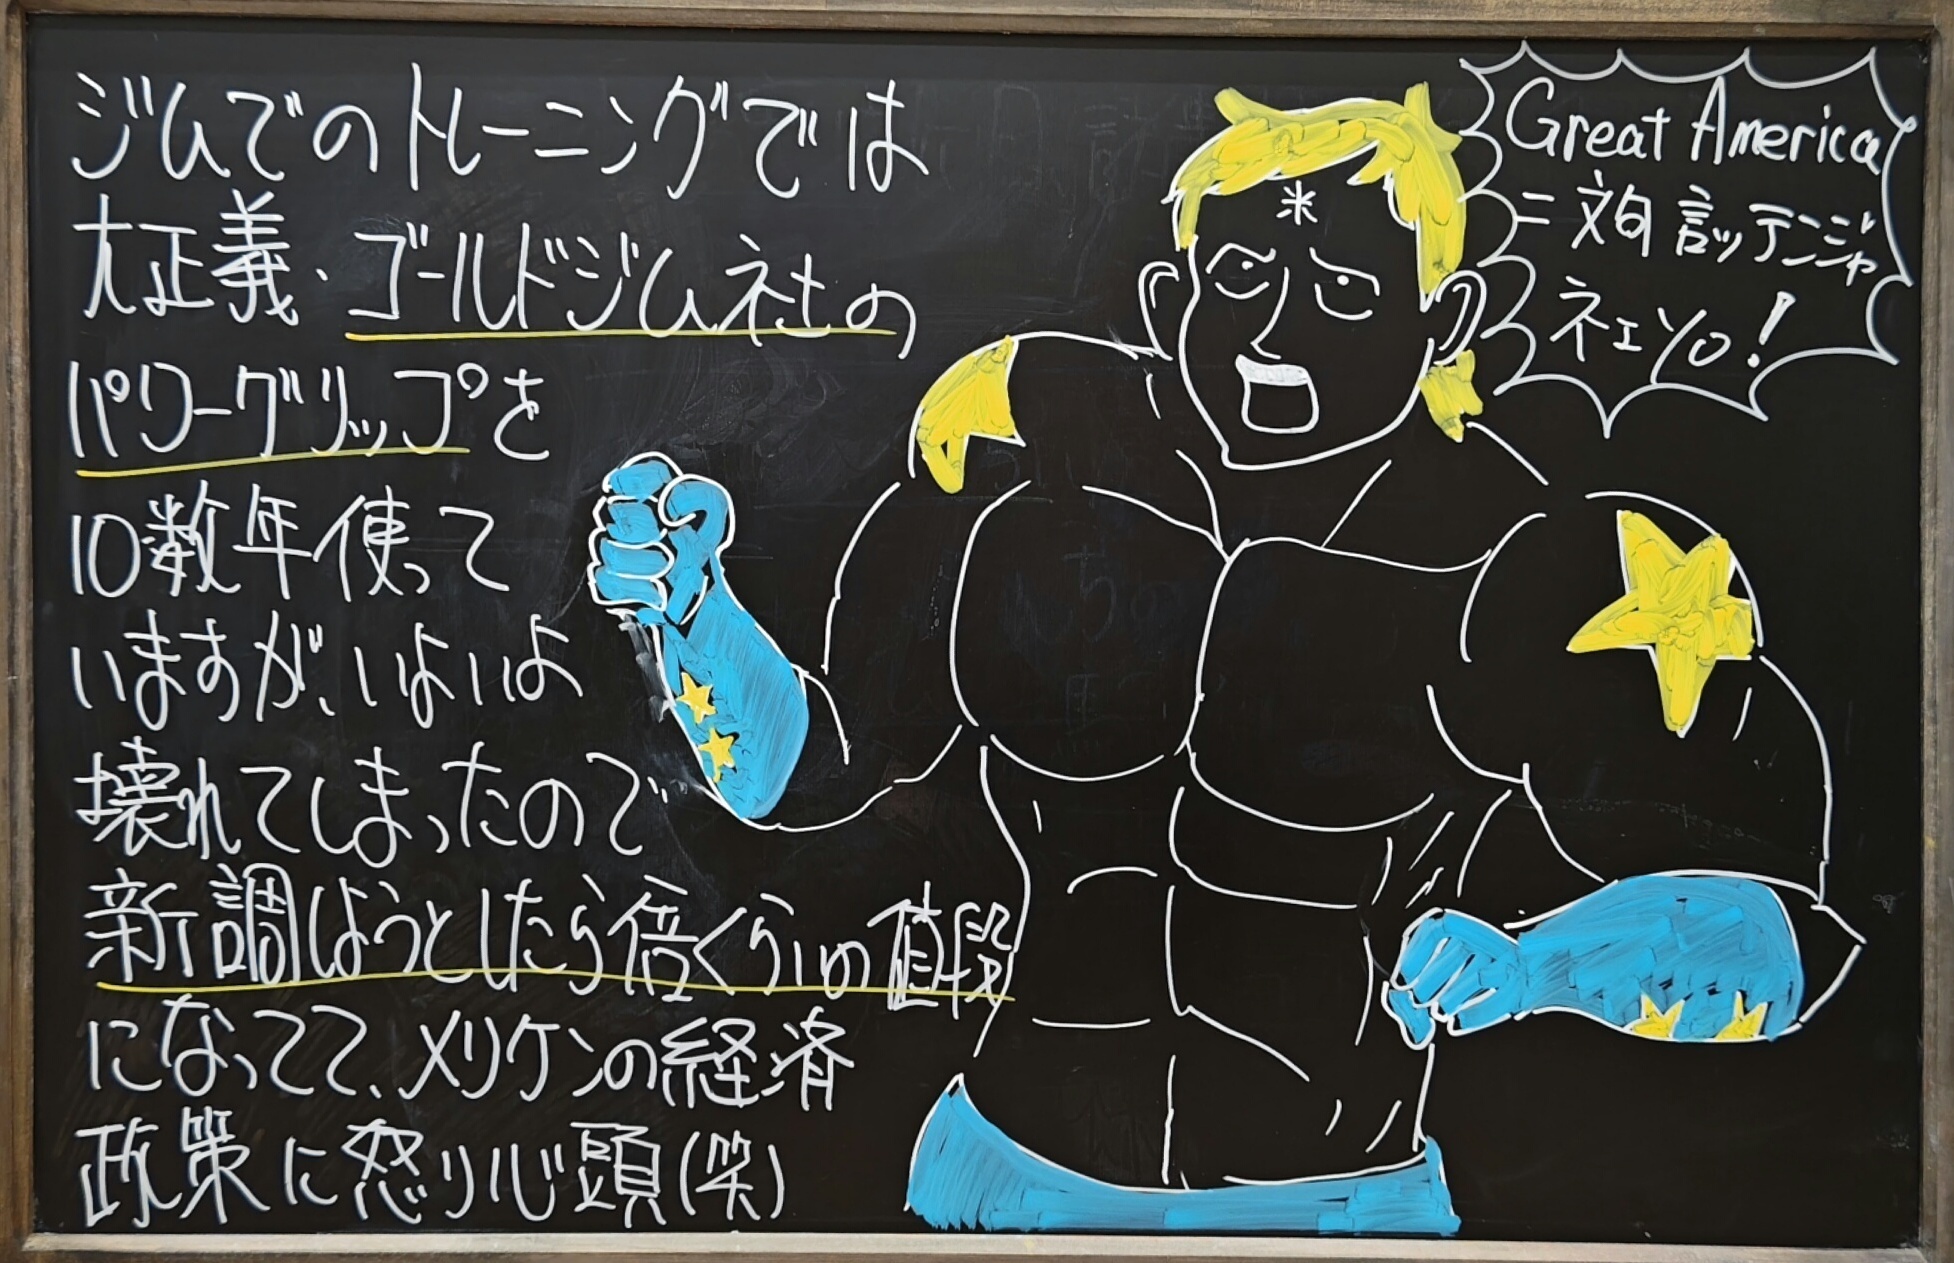 ジムでのトレーニングでは
大正義・ゴールドジム社の
パワーグリップを
10数年使って
いますが、いよいよ
壊れてしまったので
新調しようとしたら倍くらいの値段
になってて、メリケンの経済
政策に怒り心頭(笑)
Great America
ニ文句言ッテンジャ
ネェYO!
米